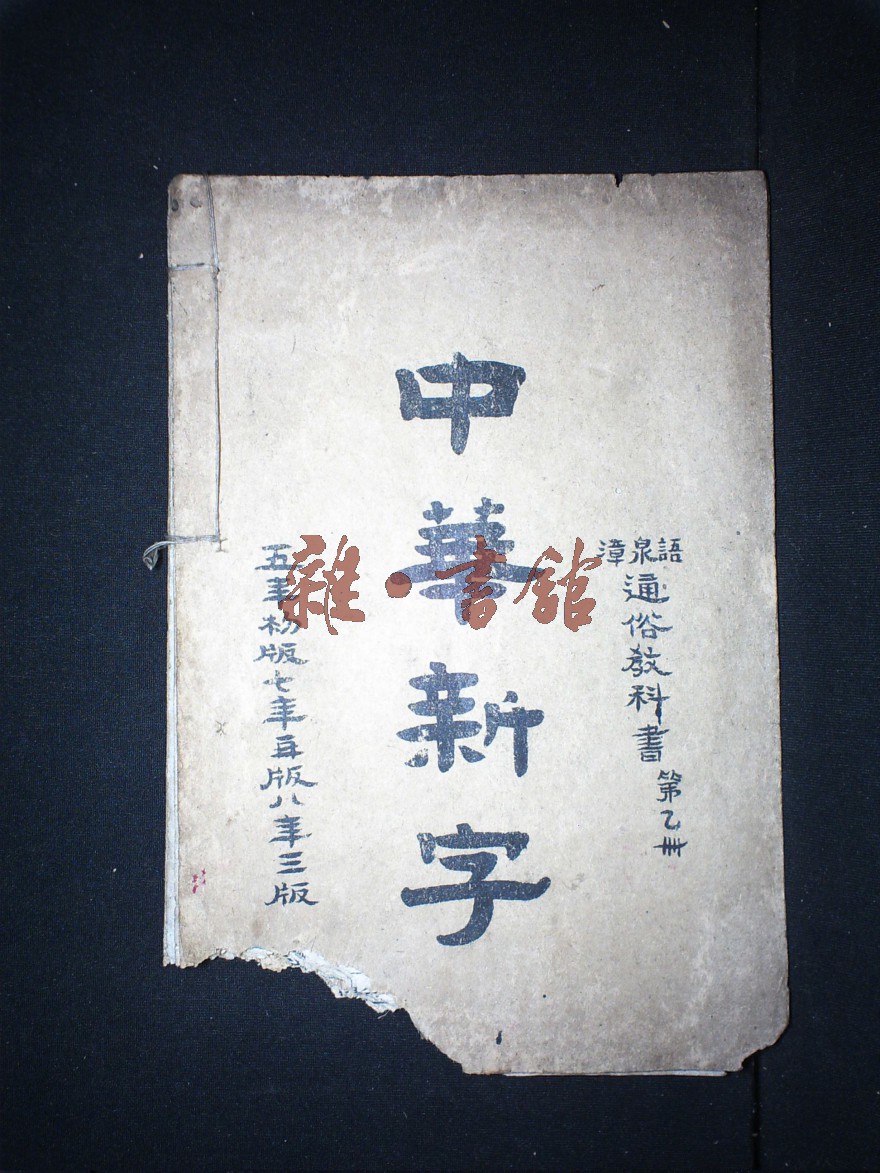 漳泉語
通俗教科書 第乙冊
中華新字
五年初版七年再版八年三版
雜·書館